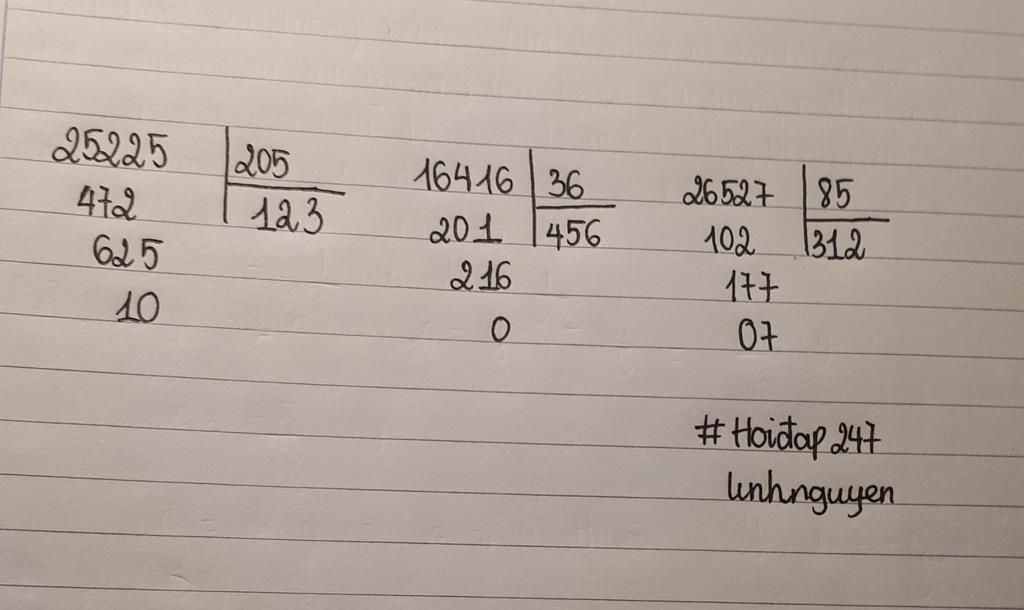 25225 205
472 123
625
10
16416 36
201 456
216
0
26527 85
102 312
177
07
#Hoiđap247
linhnguyen